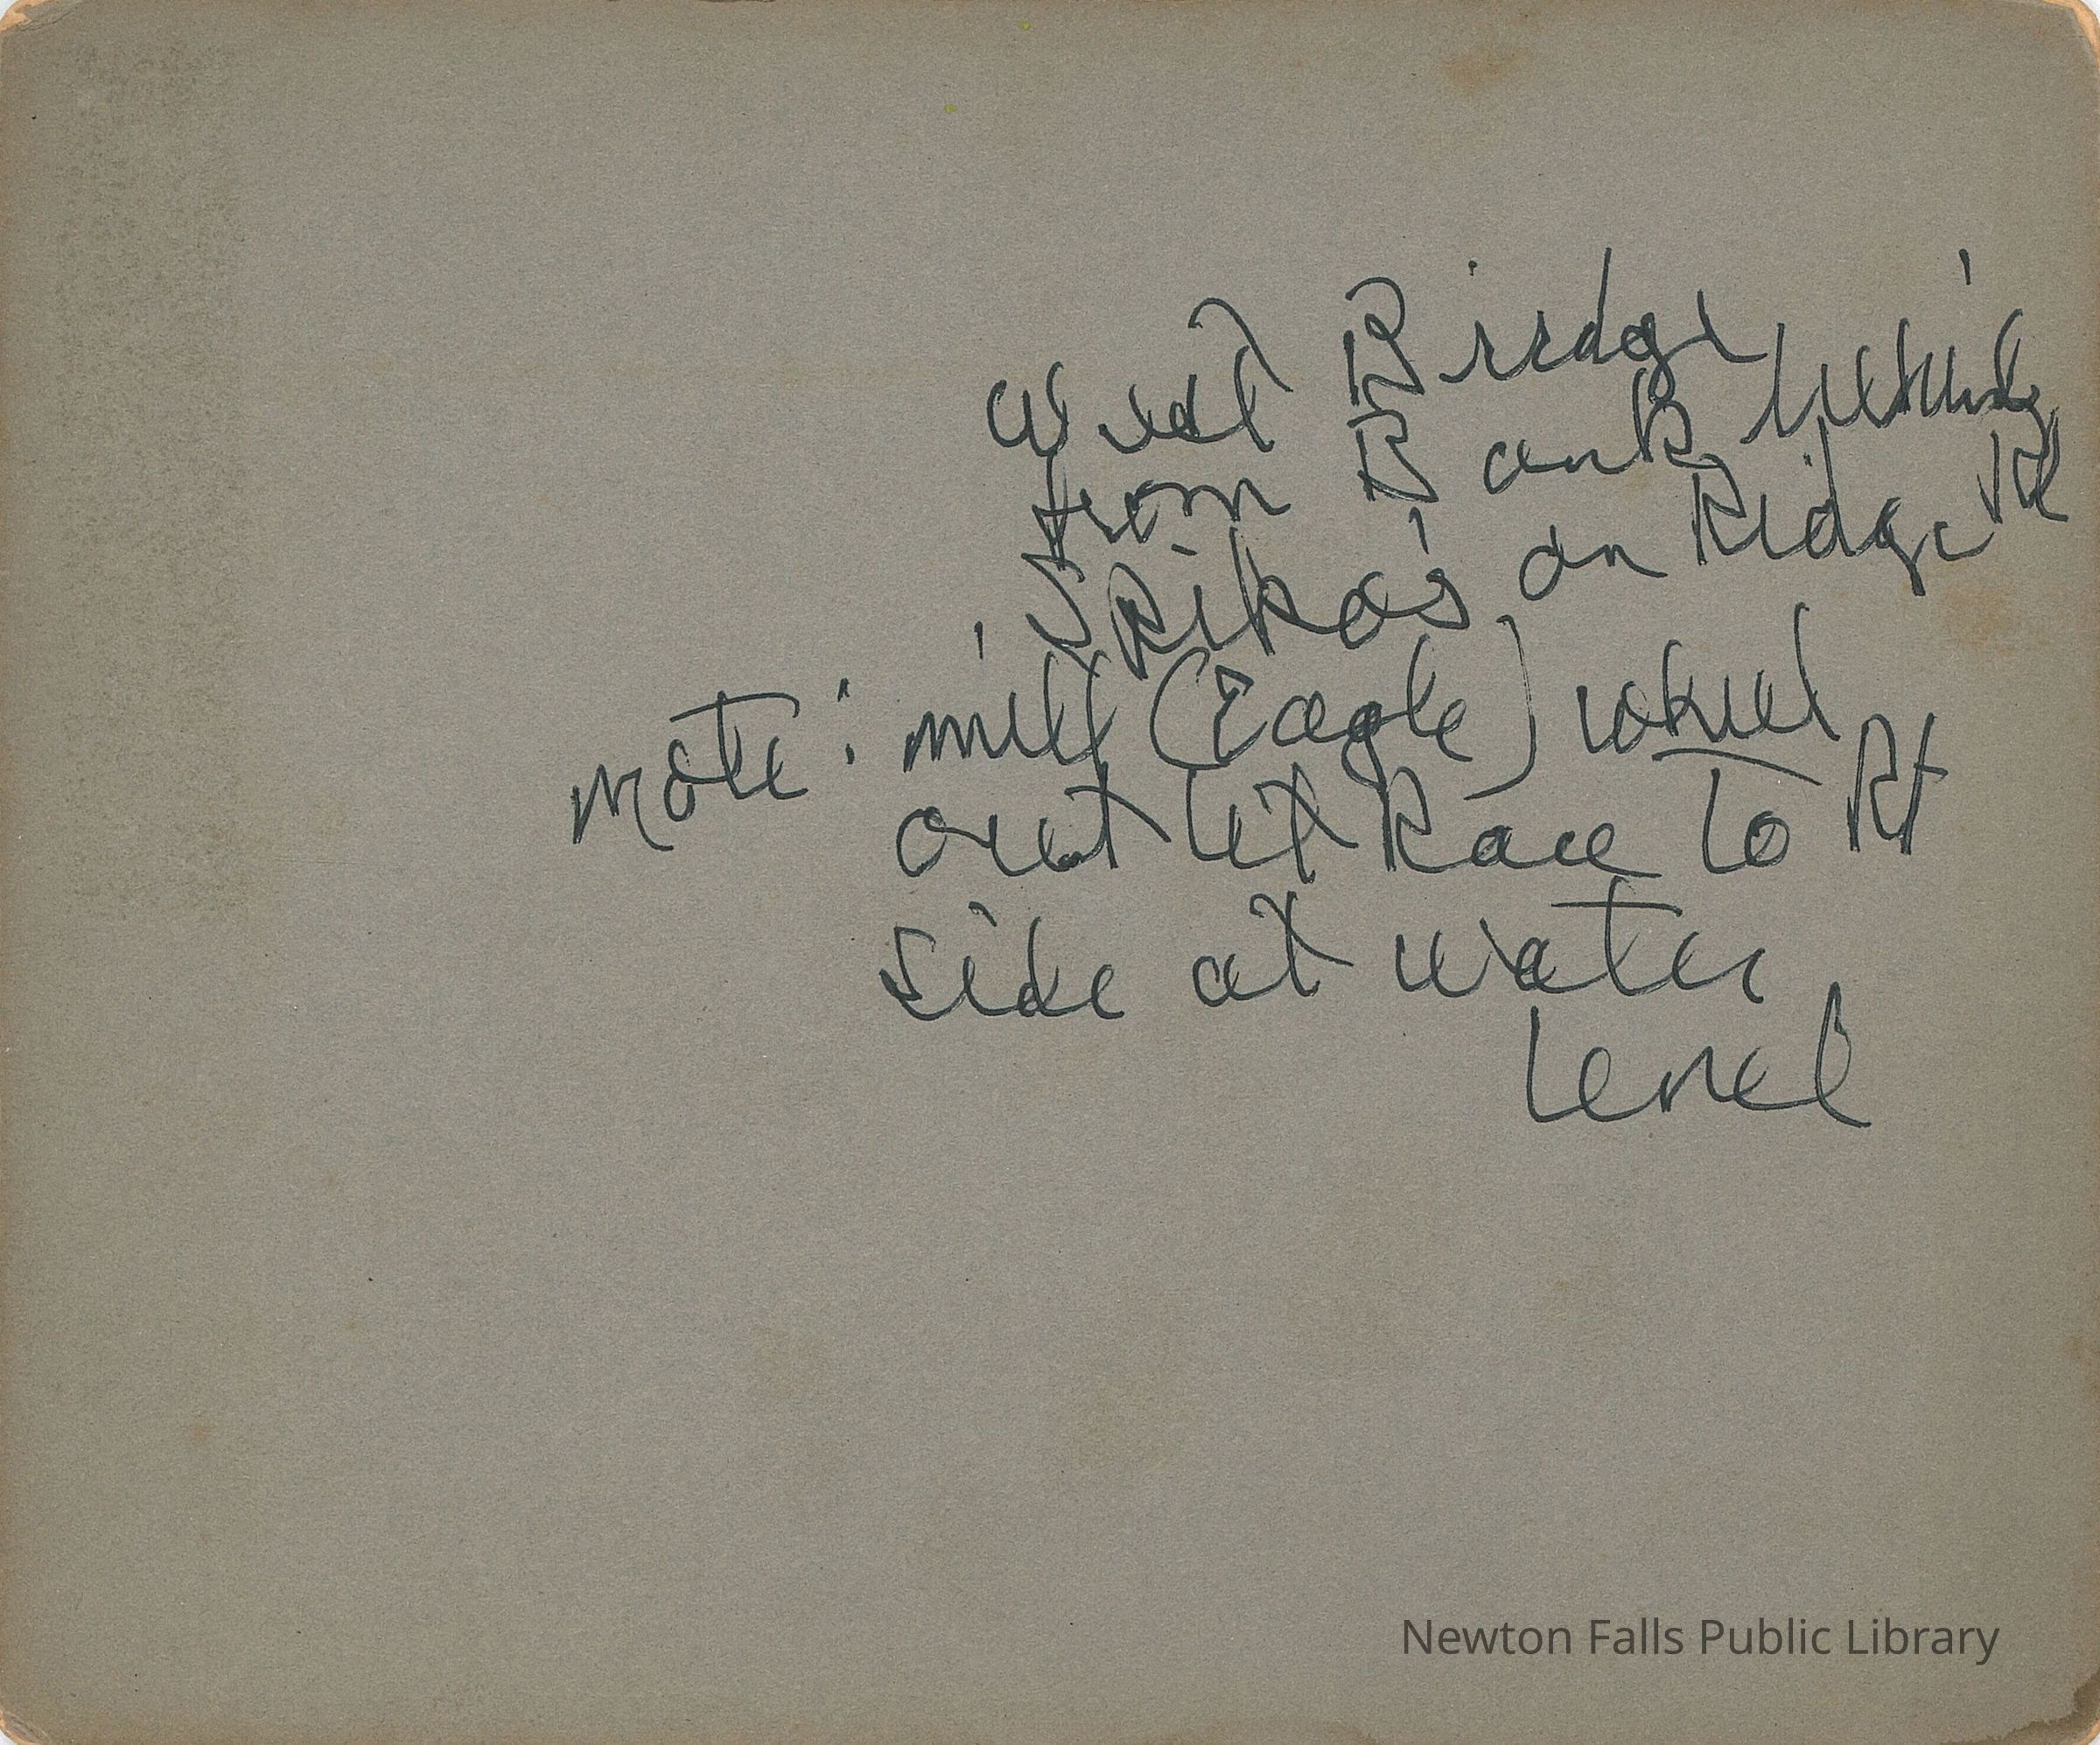 West Bridge
from Bank behind
Skiba's on Ridge Rd
Note: mill (Eagle) wheel
outlet Race to Rt
side at water
level
Newton Falls Public Library